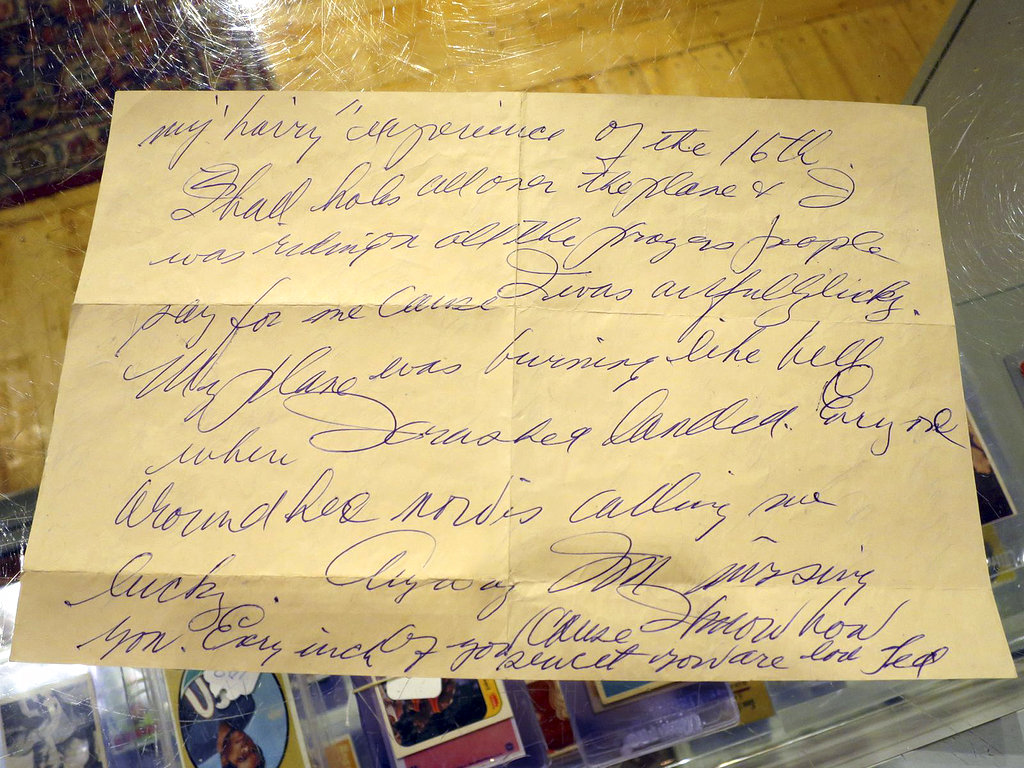 my "hairy" experience of the 16th.
I had holes all over the plane & I
was riding on all the prayers people
say for me cause I was awful lucky.
My plane was burning like hell
when I crashed landed. Every one
around here now is calling me
lucky. Anyway I'm missing
you. Every inch of you cause I know how
sweet you are love Ted
USA